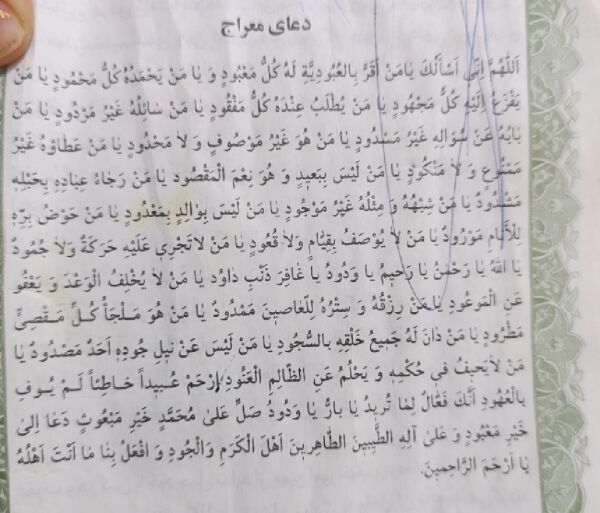 دعای معراج
اَللّٰهُمَّ اِنّى اَسْأَلُكَ يٰامَنْ اَقَرَّ بِالعُبُودِيَّةِ لَهُ كُلُّ مَعْبُودٍ وَ يٰا مَنْ يَحْمَدُهُ كُلُّ مَحْمُودٍ يٰا مَنْ
يَفْزَعُ اِلَيْهِ كُلُّ مَجْهُودٍ يٰا مَنْ يُطْلَبُ عِنْدَهُ كُلُّ مَفْقُودٍ يٰا مَنْ سٰائِلُهُ غَيْرُ مَرْدُودٍ يٰا مَنْ
بٰابُهُ عَنْ سُؤالِهِ غَيْرُ مَسْدُودٍ يٰا مَنْ هُوَ غَيْرُ مَوْصُوفٍ وَ لاٰ مَحْدُودٍ يٰا مَنْ عَطٰاؤُهُ غَيْرُ
مَمْنُوعٍ وَ لاٰ مَنْكُودٍ يٰا مَنْ لَيْسَ بِبَعيدٍ وَ هُوَ نِعْمَ الْمَقْصُود يٰا مَنْ رَجٰاءُ عِبٰادِهِ بِحَبْلِهِ
مَشْدُودٌ يٰا مَنْ شِبْهُهُ وَ مِثْلُهُ غَيْرُ مَوْجُودٍ يٰا مَنْ لَيْسَ بِوٰالِدٍ بِمَعْدُودٍ يٰا مَنْ حَوْضُ بِرِّهِ
لِلأَنٰامِ مَوْرُودٌ يٰا مَنْ لاٰ يُوْصَفُ بِقِيٰامٍ وَلاٰ قُعُودٍ يٰا مَنْ لاٰتَجْرى عَلَيْهِ حَرَكَةٌ وَلاٰ جُمُودٌ
يٰا اَللهُ يٰا رَحْمٰنُ يٰا رَحيمُ يٰا وَدُودُ يٰا غٰافِرَ ذَنْبِ دٰاوُد يٰا مَنْ لاٰ يُخْلِفُ الْوَعْدَ وَ يَعْفُو
عَنِ الْمَوعُودِ يٰا مَنْ رِزْقُهُ وَ سِتْرُهُ لِلْعٰاصينَ مَمْدُودٌ يٰا مَنْ هُوَ مَلْجَأُ كُلِّ مَقْصِىٍّ
مَطْرُودٍ يٰا مَنْ دٰانَ لَهُ جَميعُ خَلْقِهِ بِالسُّجُودِ يٰا مَنْ لَيْسَ عَنْ نيلِ جُودِهِ اَحَدٌ مَصْدُودٌ يٰا
مَنْ لاٰيَحيفُ فى حُكْمِهِ وَ يَحْلُمُ عَنِ الظّٰالِمِ الْعَنُودِ اِرْحَمْ عُبيداً خٰاطِئاً لَمْ يُوفِ
بِالْعُهُودِ اِنَّكَ فَعّٰالٌ لِمٰا تُريدُ يٰا بٰارُّ يٰا وَدُودُ صَلِّ عَلىٰ مُحَمَّدٍ خَيْرِ مَبْعُوثٍ دَعٰا اِلىٰ
خَيْرِ مَعْبُودٍ وَ عَلىٰ آلِهِ الطَّيِّبينَ الطّٰاهِرينَ اَهْلَ الْكَرَمِ وَالْجُودِ وَ افْعَلْ بِنٰا مٰا اَنْتَ اَهْلُهُ
يٰا اَرْحَمَ الرّٰاحِمينَ.